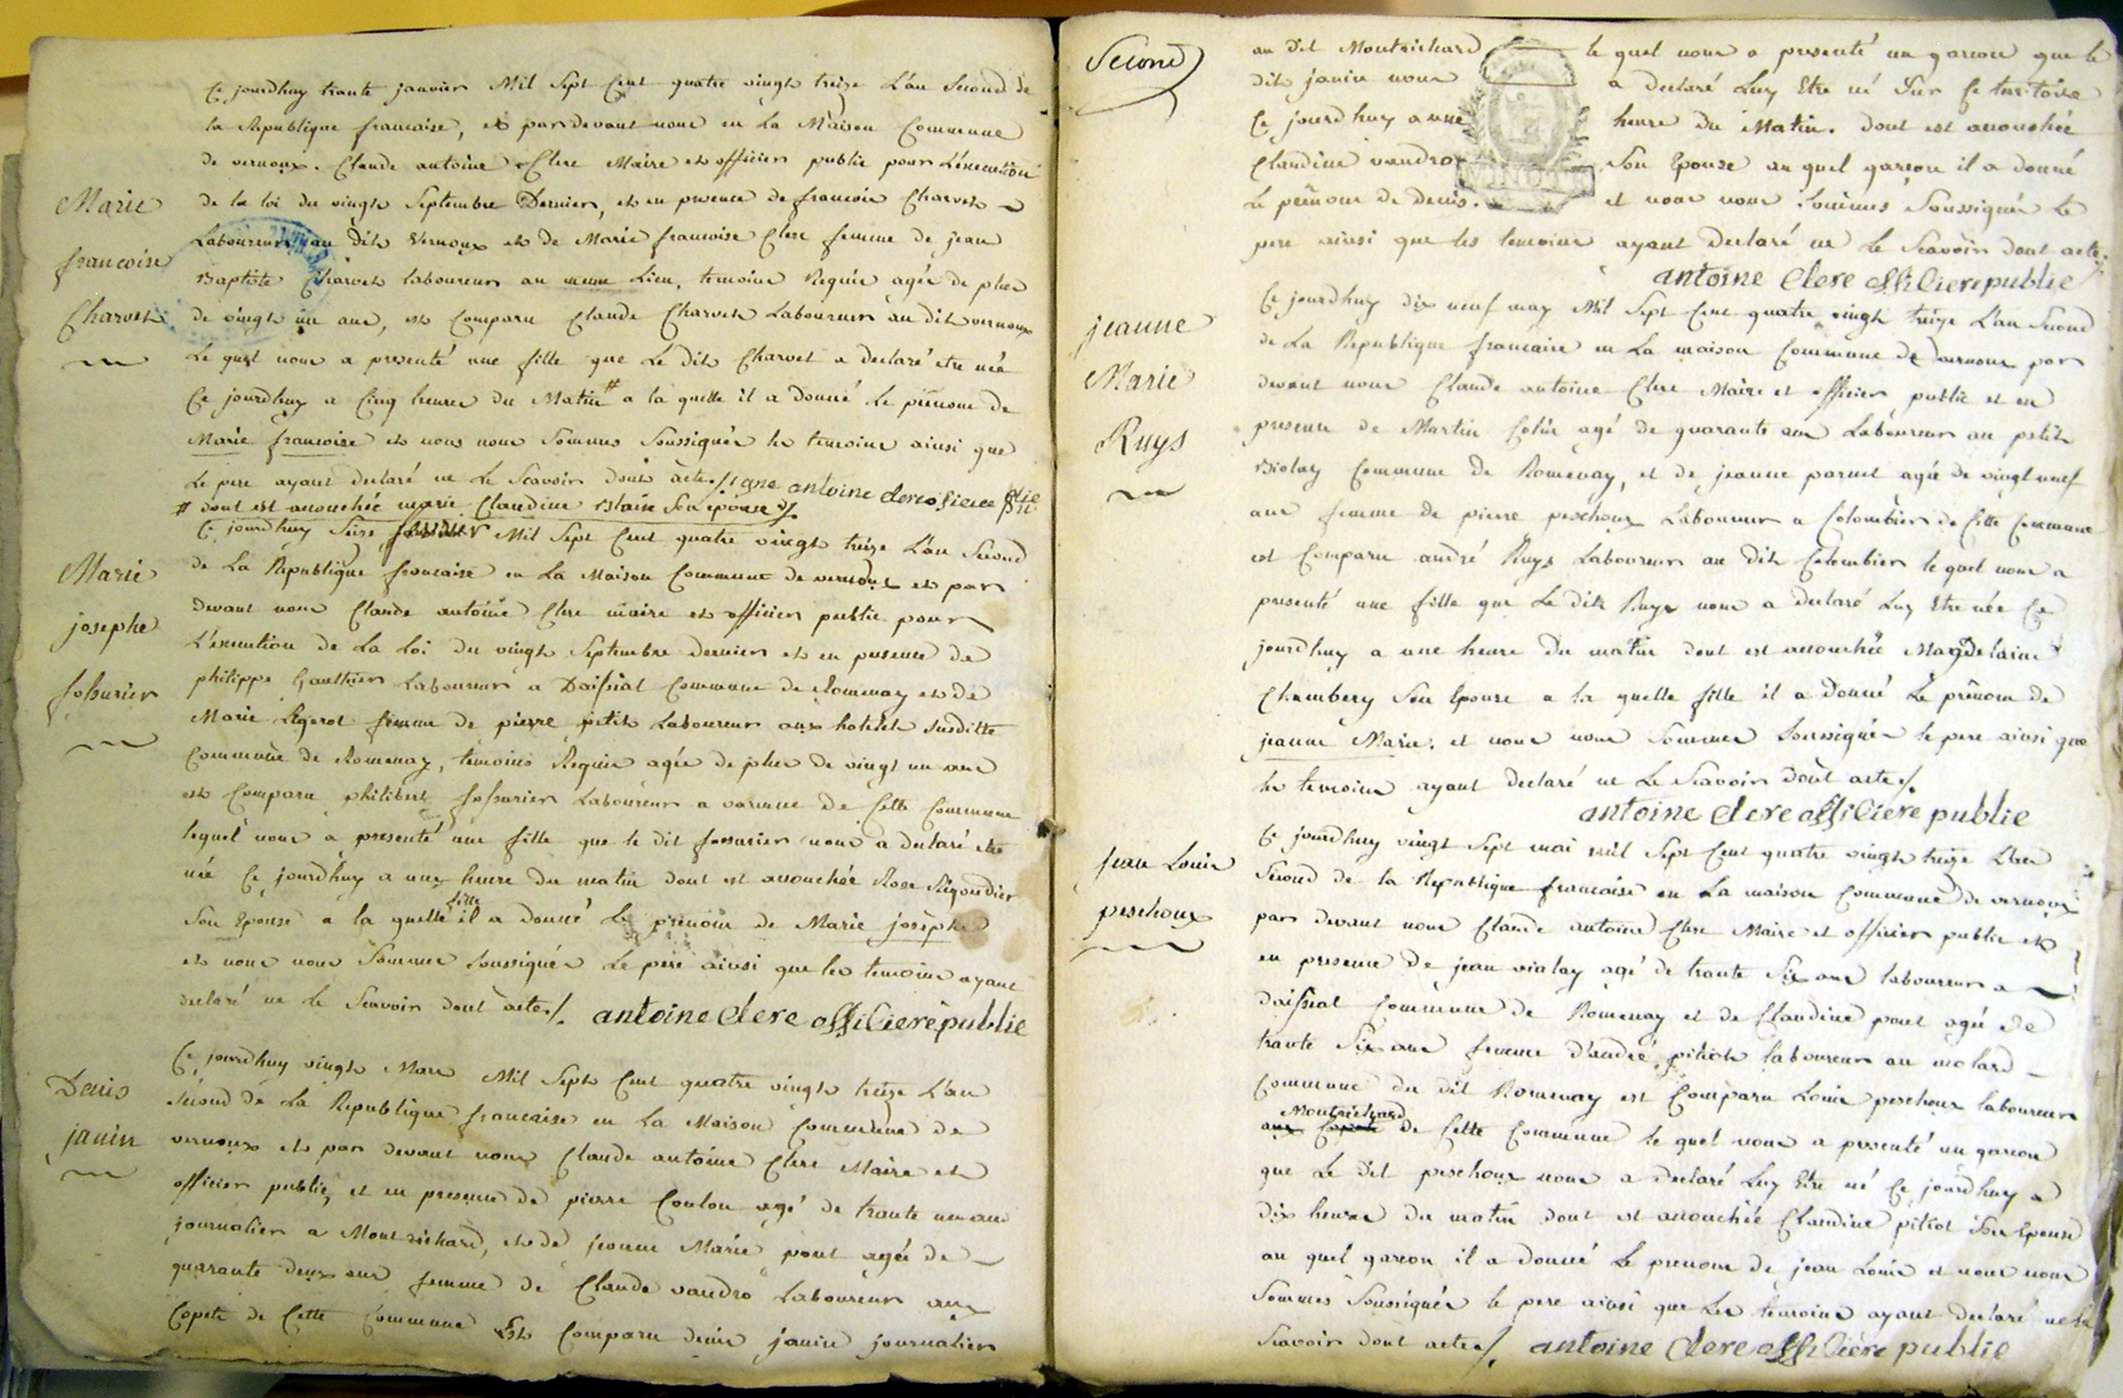 Ce jourdhuy trante janvier Mil Sept Cent quatre vingts treize L'an Second de
la Republique francaise, et par devant nous en La Maison Commune
de vernoux. Claude antoine Clerc Maire et officier public pour L'execution
Marie
de la loi du vingts Septembre Dernier, et en presence de francois Charvet
Laboureur au dits Vernoux et de Marie francoise Clerc femme de jean
francoise
Baptiste Charvet laboureur au meme Lieu, temoins Requis agés de plus
Charvet
de vingt un ans, est Comparu Claude Charvet Laboureur au dits vernoux
Le quel nous a presenté une fille que Le dits Charvet a declaré etre née
Ce jourdhuy a Cinq heures du Matin # a la quelle il a donné Le prenom de
Marie francoise et nous nous Sommes Soussignés les temoins ainsi que
Le pere ayant declaré ne Le Scavoir dont acte./. antoine clerc
# dont est accouchée marie Claudine Son epouse ./.
Ce jourdhuy Seize fevrier Mil Sept Cent quatre vingts treize L'an Second
Marie
de La Republique francaise en La Maison Commune de vernoux et par
devant nous Claude antoine Clerc maire et officier public pour
josephe
L'execution de La Loi du vingts Septembre dernier et en presence de
philippe Gauthier Laboureur a Daissiat Commune de Romenay et de
fossurier
Marie femme de pierre petit Laboureur aux susditte
Commune de Romenay, temoins Requis agés de plus de vingt un ans
est Comparu philibert fossurier Laboureur a varenne de Cette Commune
lequel nous a presenté une fille que le dit fossurier nous a declaré etre
née Ce jourdhuy a une heure du matin dont est accouchée Rose
Son Epouse a la quelle fille il a donné Le prenom de Marie josephe
et nous nous Sommes Soussignés Le pere ainsi que les temoins ayant
declaré ne le Scavoir dont acte./. antoine clerc officiere publie
Ce jourdhuy vingts Mars Mil Septs Cent quatre vingts treize L'an
Denis
Second de La Republique francaise en La Maison Commune de
janin
vernoux et par devant nous Claude antoine Clerc Maire et
officier public, et en presence de pierre Coulon agé de trante un ans
journalier a Montrichard, et de jeanne Marie pont agée de
quarante deux ans femme de Claude vaudro Laboureur aux
Copets de Cette Commune Est Comparu denis janin journalier
Second
au dit Montrichard le quel nous a presenté un garcon que le
dit janin nous a declaré Luy Etre né Sur Ce territoire
Ce jourdhuy a une heure du Matin. dont est accouchée
Claudine vaudro Son Epouse au quel garcon il a donné
Le prenom de denis. et nous nous Sommes Soussignés Le
pere ainsi que les temoins ayant declaré ne Le Scavoir dont acte.
antoine clere officiere publie
Ce jourdhuy dix neuf may Mil Sept Cent quatre vingts treize L'an Second
jeanne
de La Republique francaise en La maison Commune de vernoux par
Marie
devant nous Claude antoine Clerc Maire et officier public et en
Ruys
presence de Martin Colin agé de quarante ans Laboureur au petit
Biolay Commune de Romenay, et de jeanne parnet agée de vingt neuf
ans femme de pierre peschoux Laboureur a Colombier de Cette Commune
est Comparu andré Ruys Laboureur au dits Colombier le quel nous a
presenté une fille que Le dits Ruys nous a declaré Luy Etre née Ce
jourdhuy a une heure Du matin dont est accouchée Magdelaine
Chambery Son Epouse a la quelle fille il a donné Le prenom de
jeanne Marie. et nous nous Sommes Soussignés le pere ainsi que
les temoins ayant declaré ne Le Scavoir dont acte./.
antoine clere officiere publie
Ce jourdhuy vingt Sept mai mil Sept Cent quatre vingts treize L'an
jean Louis
Second de la Republique francaise en La maison Commune de vernoux
peschoux
par devant nous Claude antoine Clerc Maire et officier public et
en presence de jean vialay agé de trante Six ans laboureur a
daissiat Commune de Romenay et de Claudine pont agée de
trante Six ans femme d'andré pitiot laboureur au molard
Commune du dit Romenay est Comparu Louis peschoux laboureur
Montrichard
aux Copets de Cette Commune le quel nous a presenté un garcon
que Le dit peschoux nous a declaré Luy Etre né Ce jourdhuy a
dix heures du matin dont est accouchée Claudine pitiot Son Epouse
au quel garcon il a donné Le prenom de jean Louis et nous nous
Sommes Soussignés le pere ainsi que Les temoins ayant declaré ne le
Scavoir dont acte./. antoine clere officiere publie